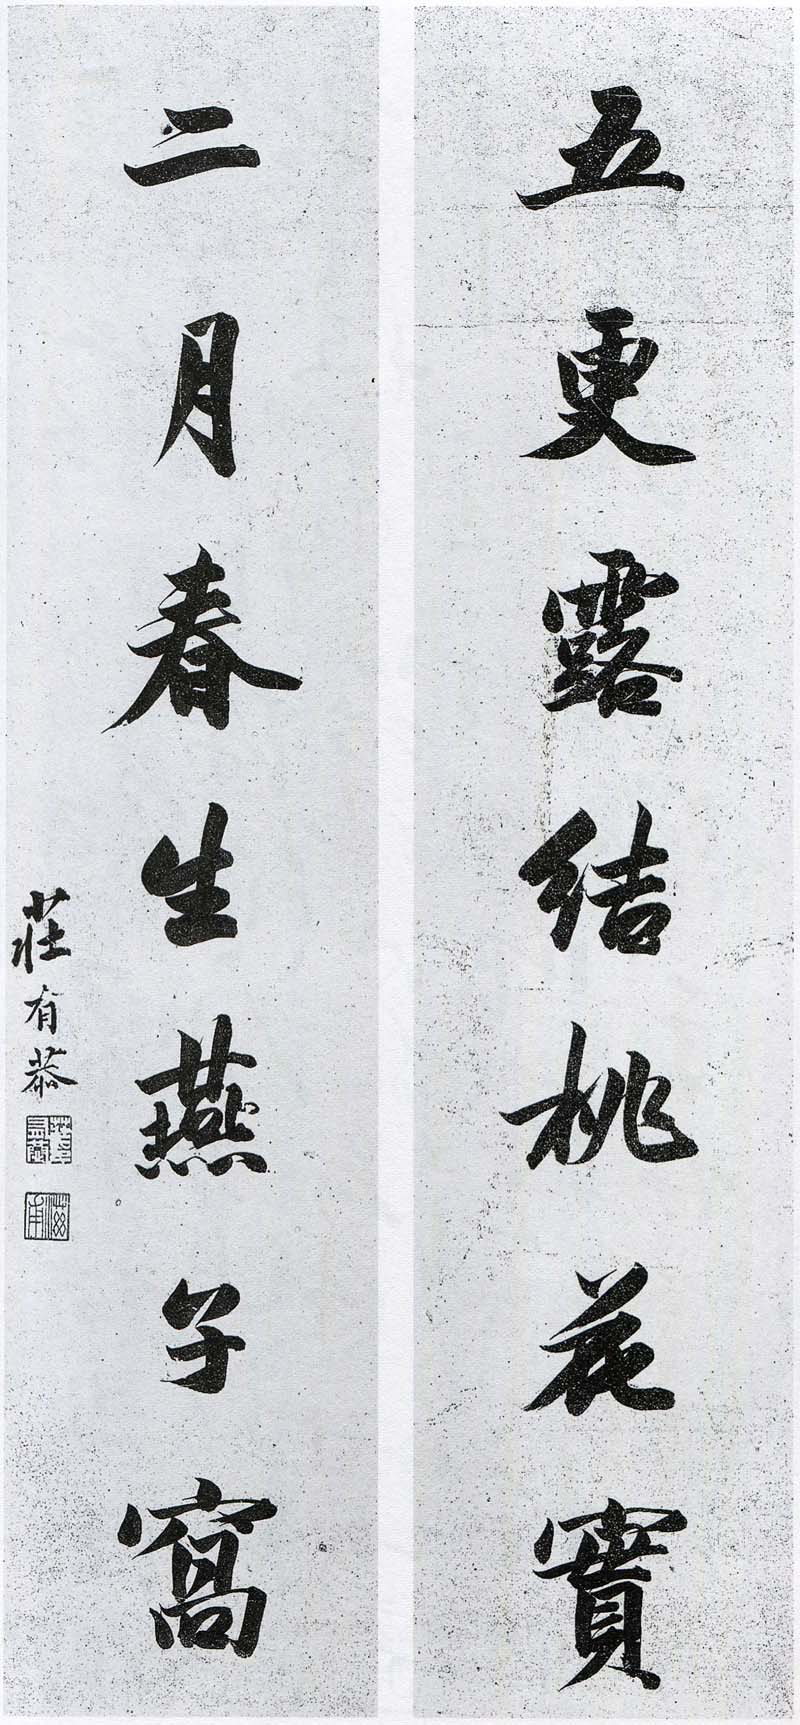 五更露結桃花實
二月春生燕子窩
莊有恭